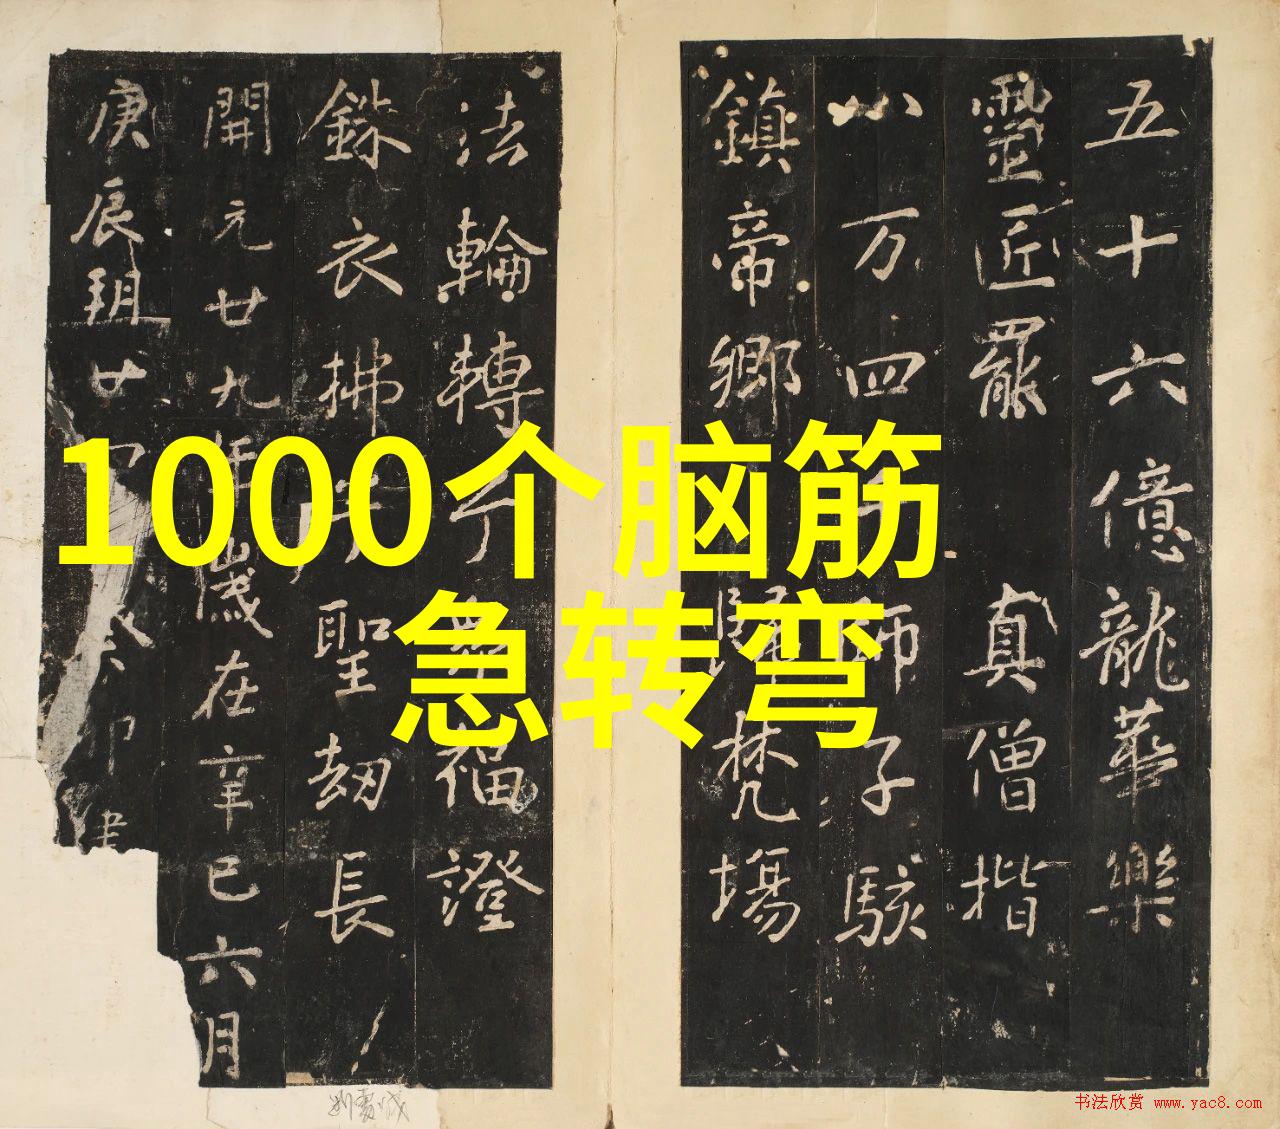 五十六億龍華樂
靈匠罷 真僧揩
八万四千師子駭
鎮帝鄉 歸梵場
法輪轉 福證
銖衣拂 聖劫長
開元廿九年歲在辛巳六月
庚辰玥廿 癸卯建
1000个脑筋
急转弯
书法欣赏 www.yac8.com